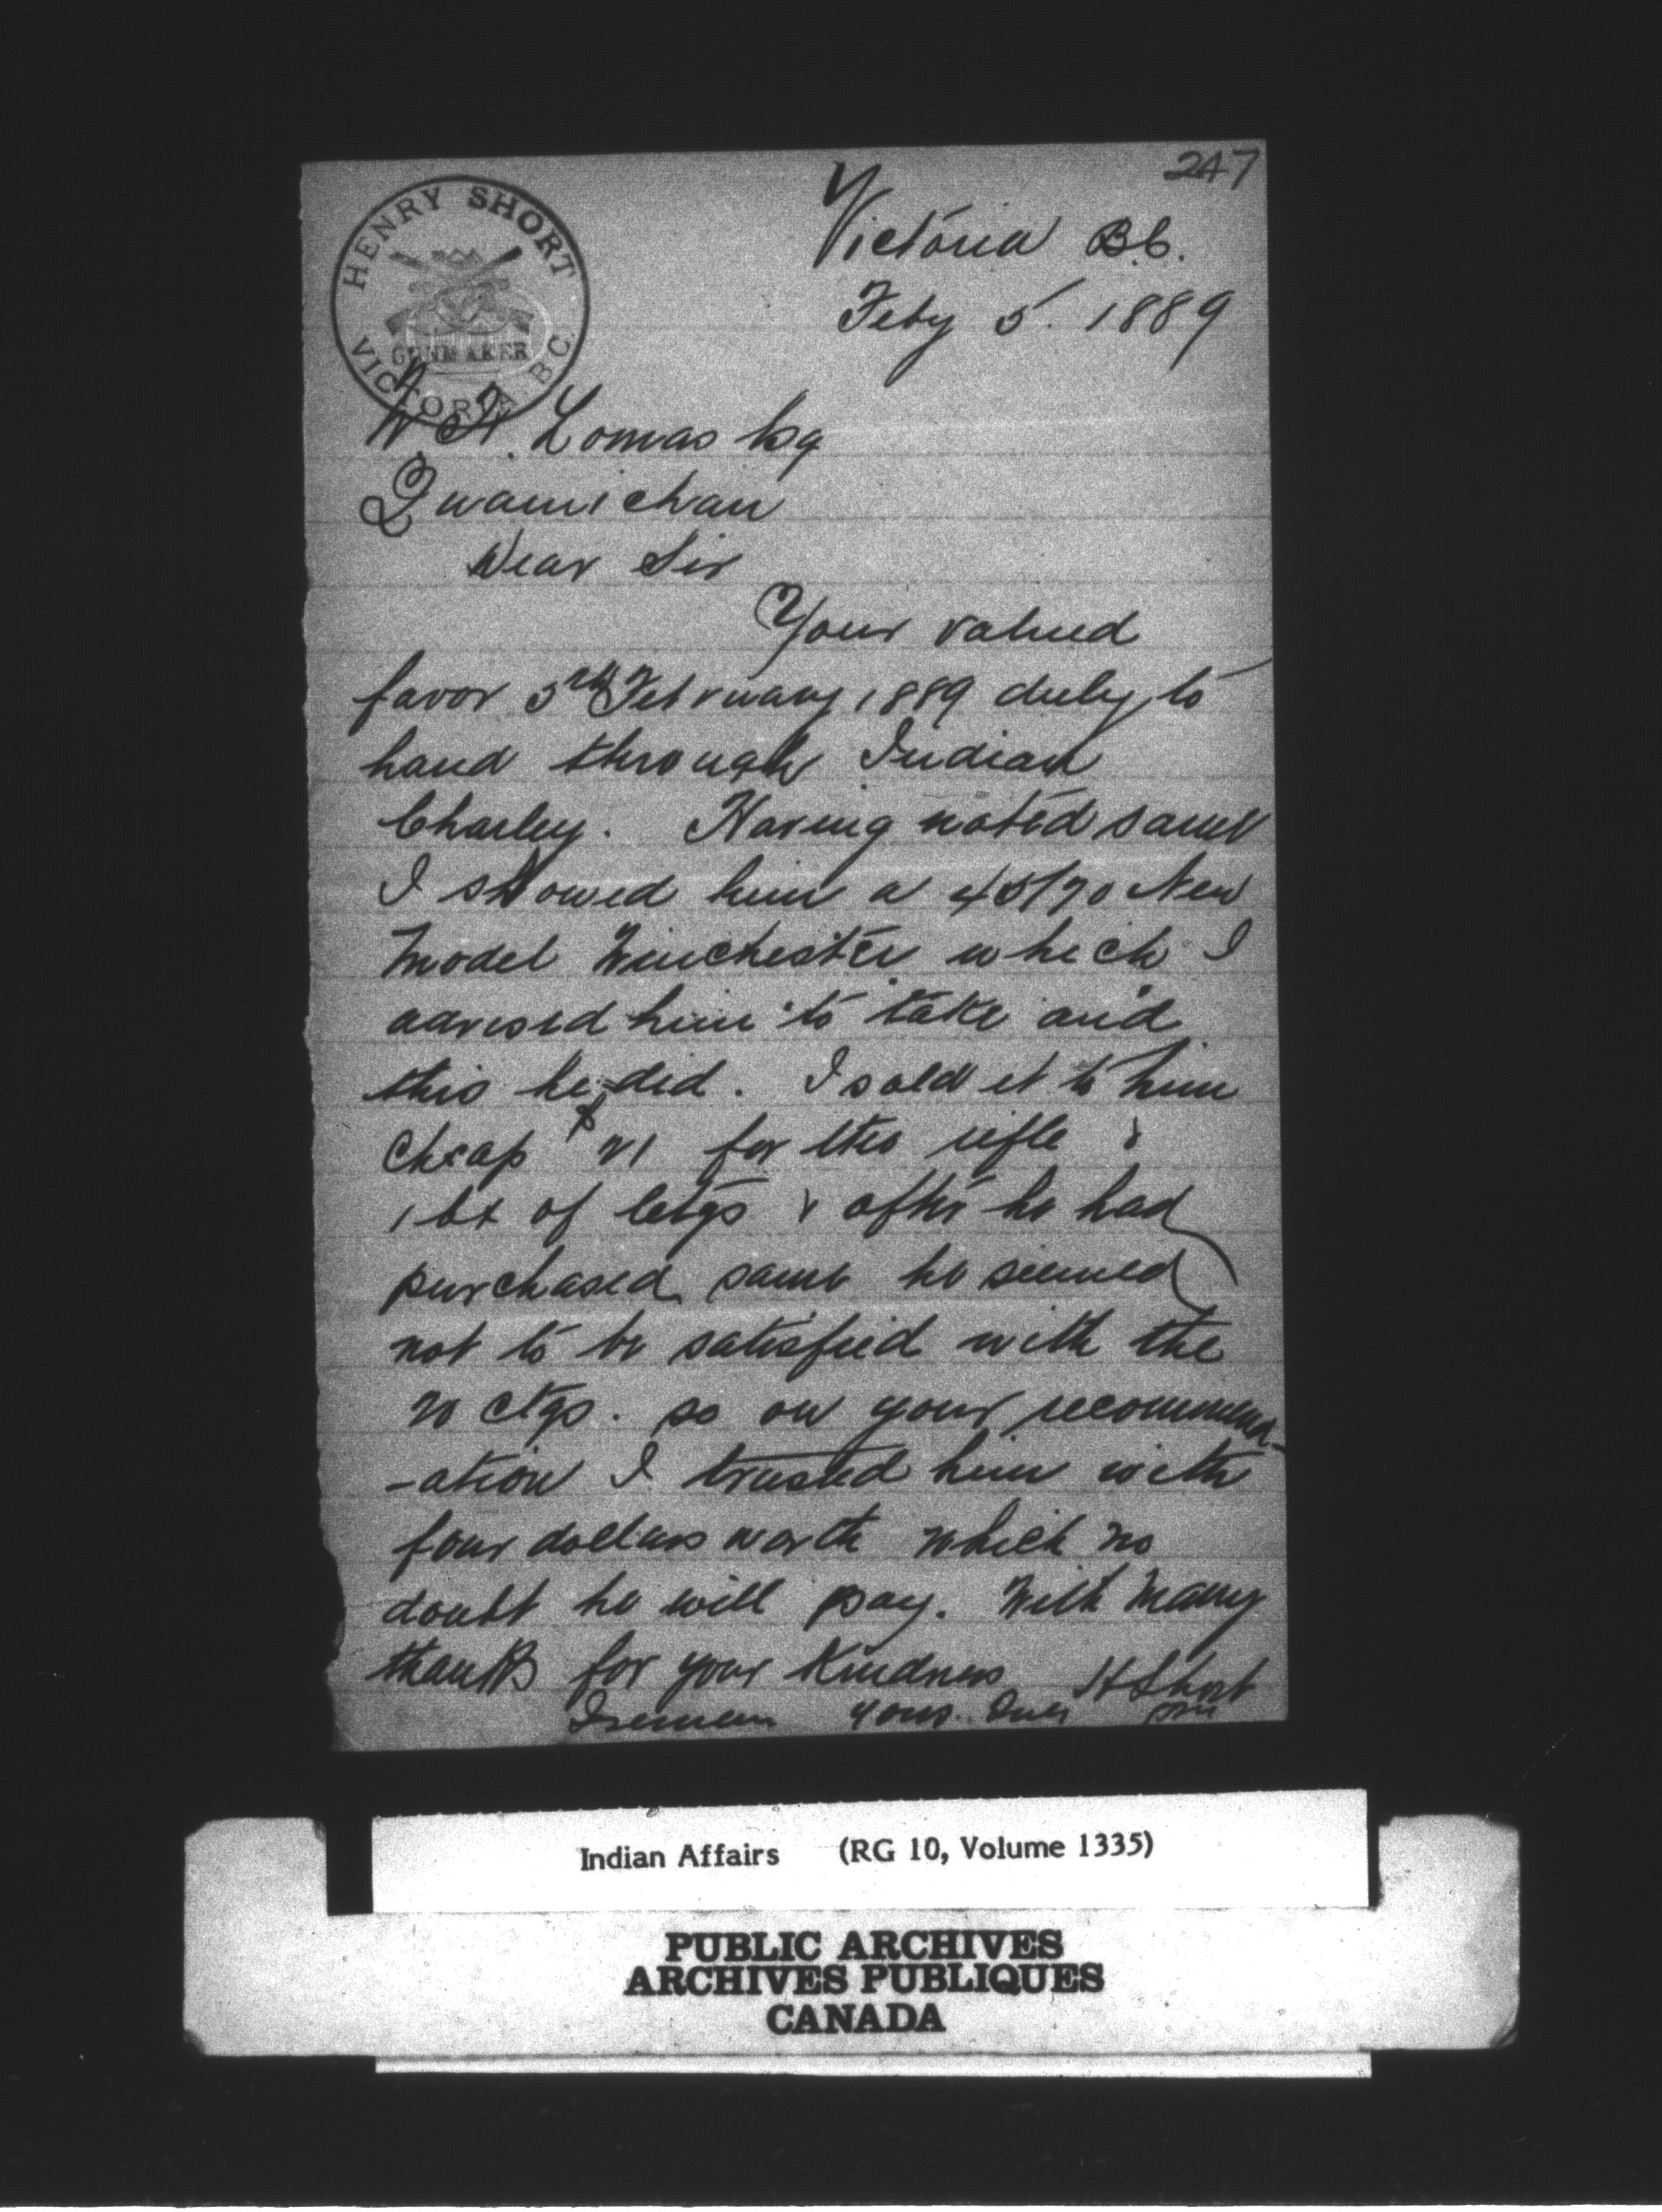 247
HENRY SHORT
GUNMAKER
VICTORIA B.C.
Victoria B.C.
Feby 5. 1889
W. H. Lomas Esq
Quamichan
Dear Sir
Your valued
favor 5th February 1889 duly to
hand through Indian
Charley. Having noted same
I showed him a 45/70 New
Model Winchester which I
advised him to take and
this he did. I sold it to him
cheap $21 for the rifle &
1 bx of Ctgs & after he had
purchased same he seemed
not to be satisfied with the
20 ctgs. so on your recommend-
-ation I trusted him with
four dollars worth which no
doubt he will pay. With many
thanks for your Kindness
I remain yours truly H Short
Indian Affairs (RG 10, Volume 1335)
PUBLIC ARCHIVES
ARCHIVES PUBLIQUES
CANADA